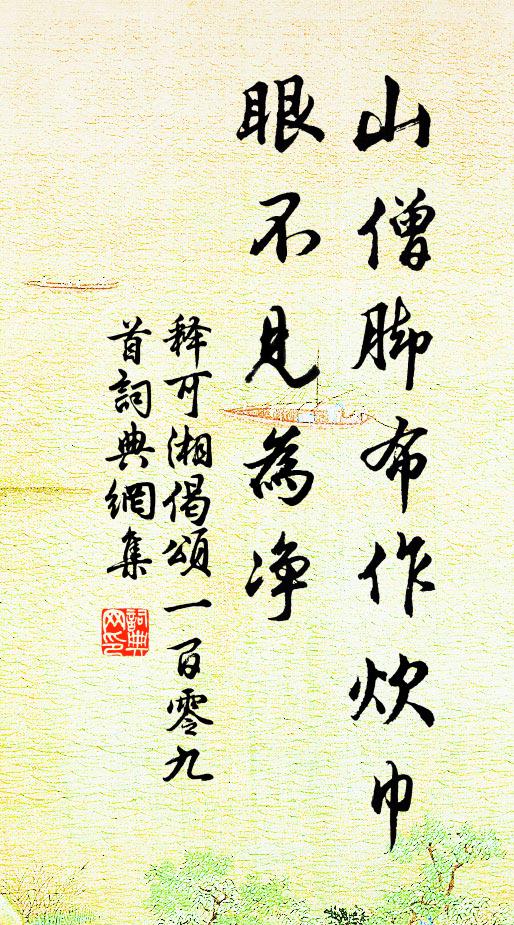 山僧脚布作炊巾
眼不見為净
释可湘偈頌一百零九
首詞典網集
詞典
网印